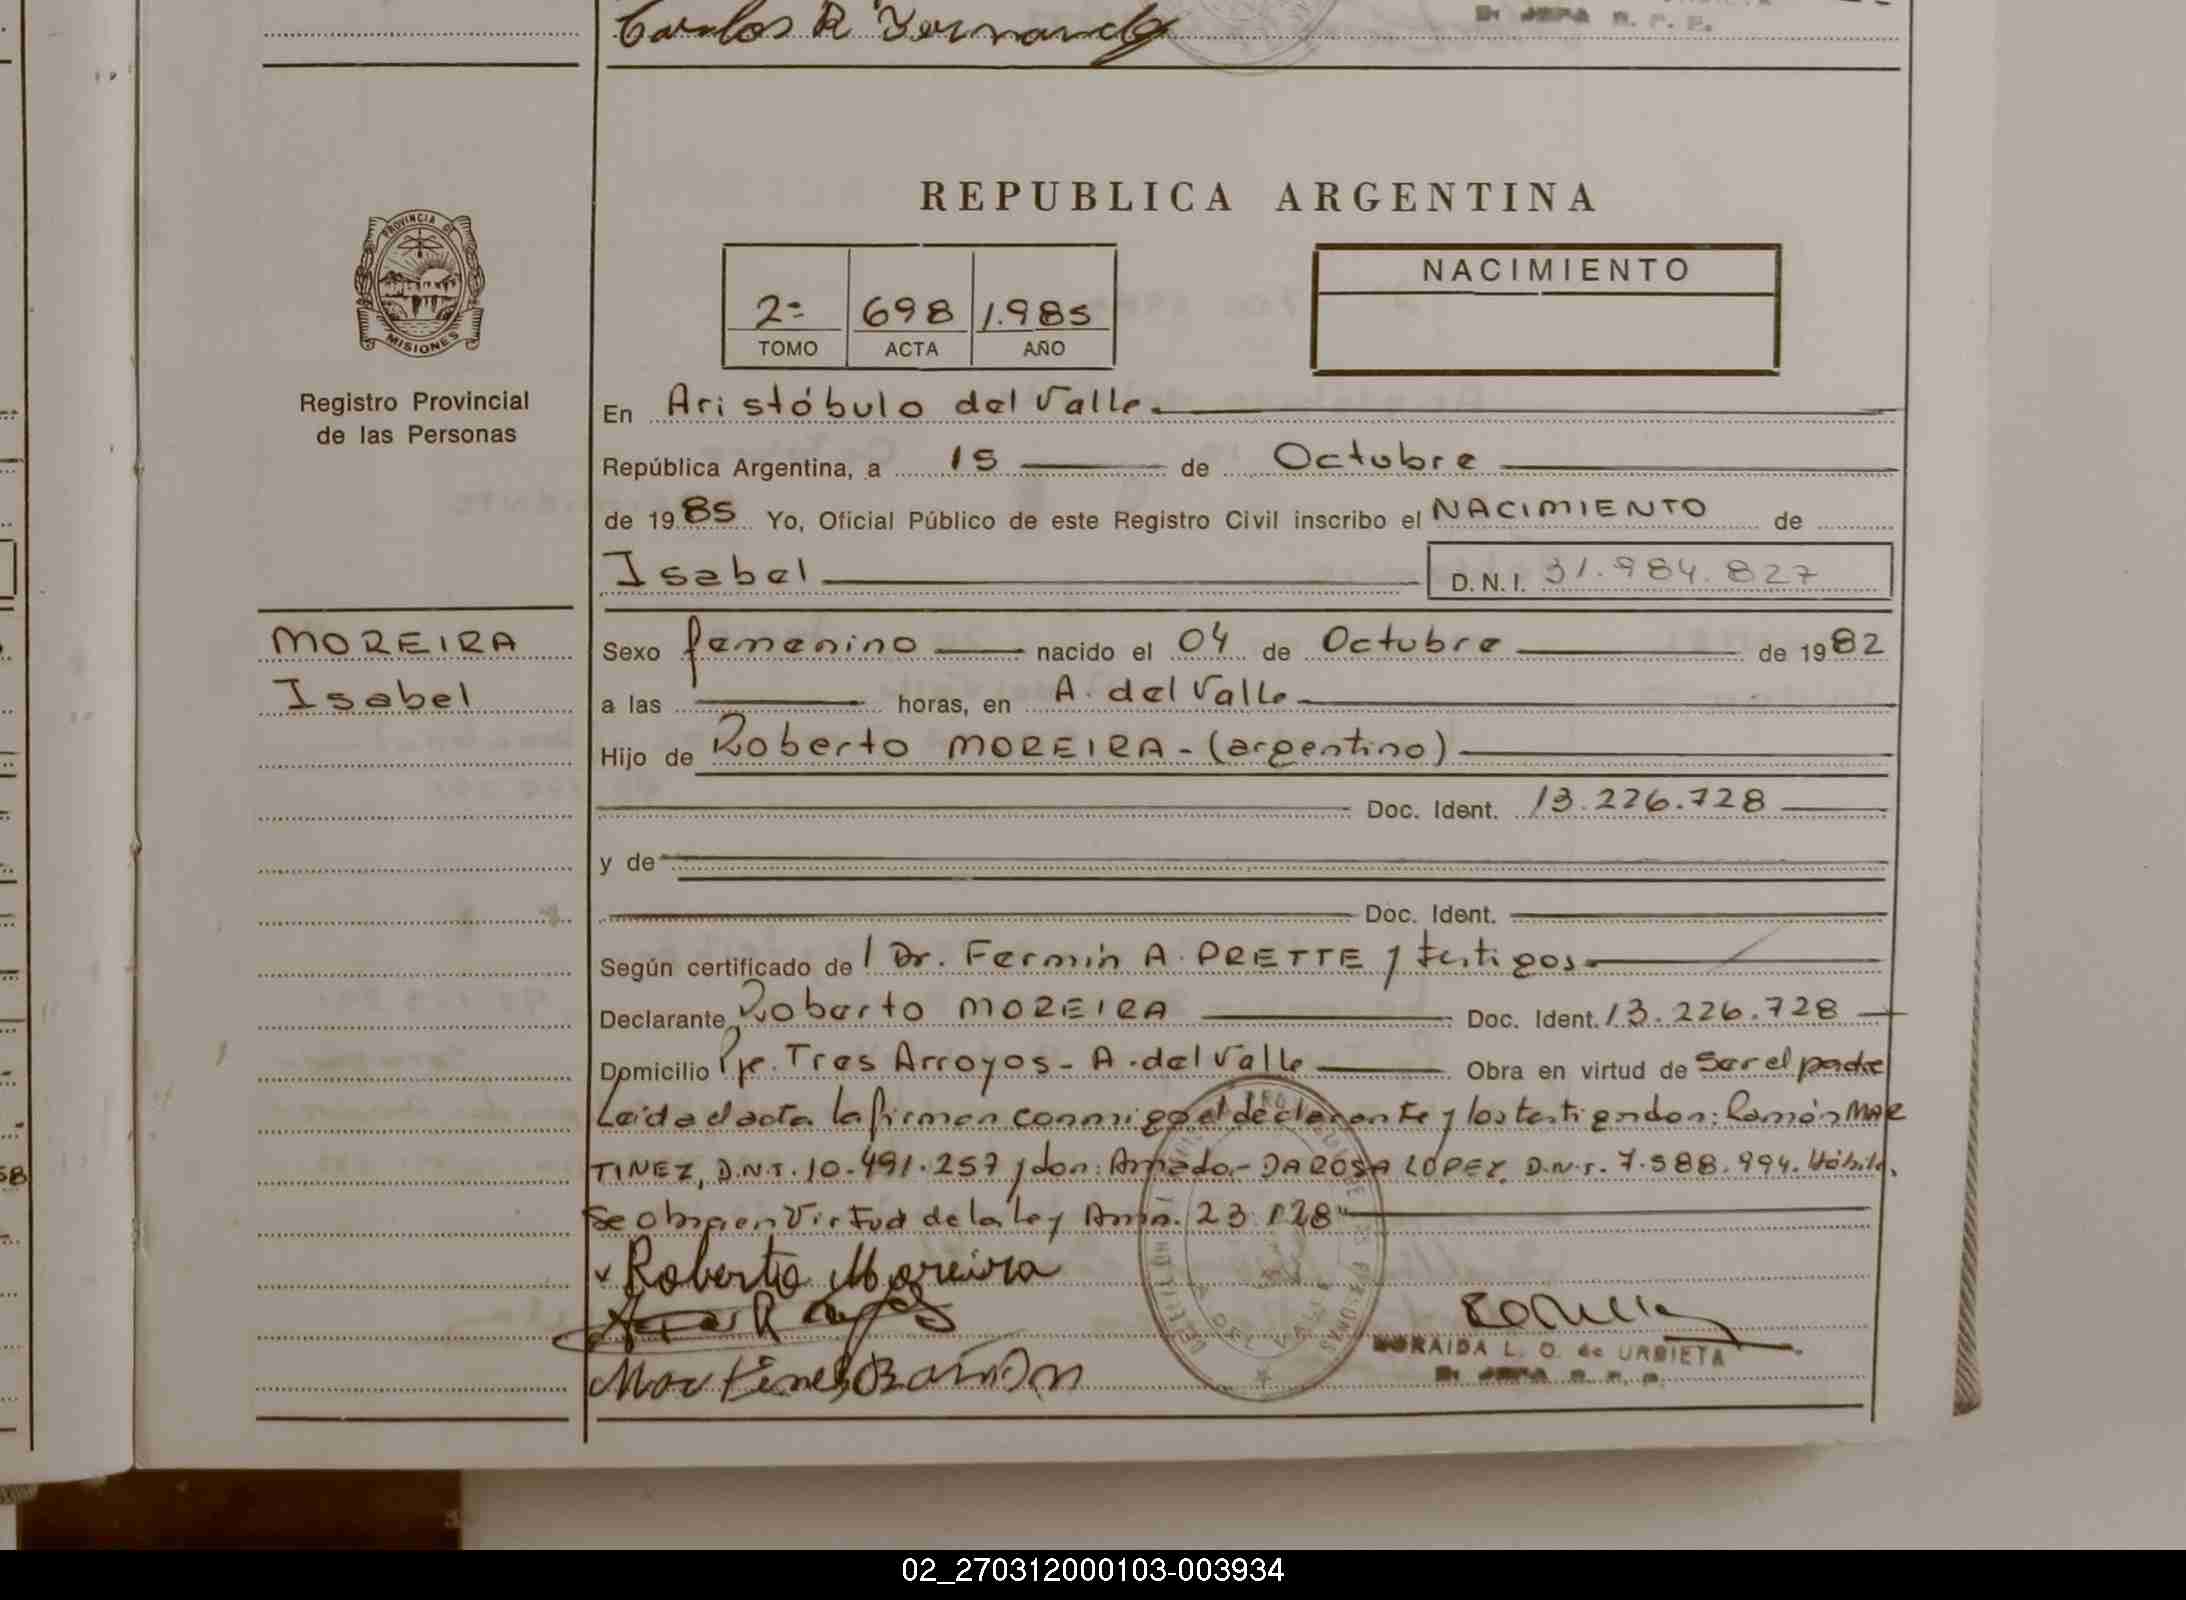 Carlos R Fernandez
REPUBLICA ARGENTINA
PROVINCIA DE
MISIONES
Registro Provincial
de las Personas
2=
698
1.985
TOMO
ACTA
AÑO
NACIMIENTO
En Aristóbulo del Valle.
República Argentina, a 15 de Octubre
de 1985 Yo, Oficial Público de este Registro Civil inscribo el NACIMIENTO de
Isabel D.N.I. 31.984.827
MOREIRA
Isabel
Sexo femenino nacido el 04 de Octubre de 1982
a las horas, en A. del Valle
Hijo de Roberto MOREIRA - (argentino)
Doc. Ident. 13.226.728
y de
Doc. Ident.
Según certificado de l Dr. Fermín A. PRETTE y testigos.
Declarante Roberto MOREIRA Doc. Ident. 13.226.728
Domicilio Pje. Tres Arroyos - A. del Valle Obra en virtud de Ser el padre
Leida el acta la firman conmigo el declarante y los testigos don: Ramón MAR
TINEZ, D.N.I. 10.491.257 y don: Amado - DA ROSA LOPEZ, D.N.I. 7.588.994. Hábiles.
Se obra en Virtud de la Ley Amn. 23.128"
Roberto Moreira
Martines Ramon
L. O. de URBIETA
02_270312000103-003934